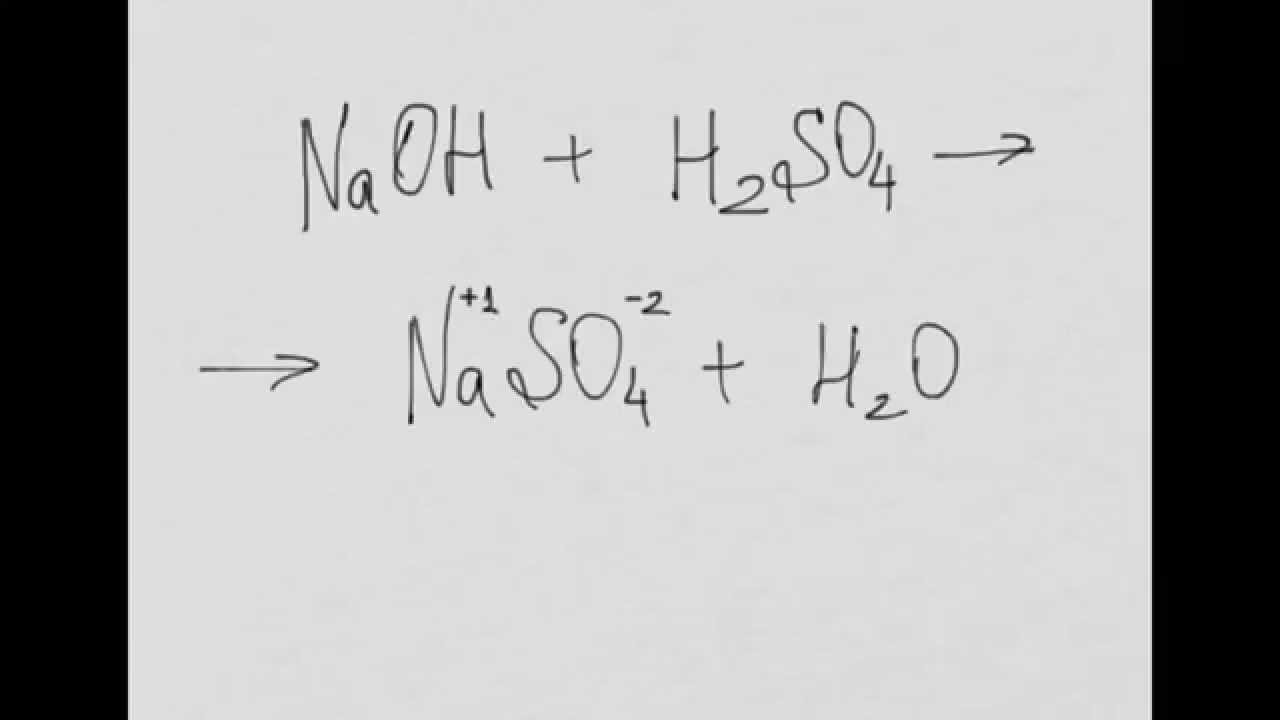 NaOH + H₂SO₄ →
→ Na⁺¹SO₄⁻² + H₂O